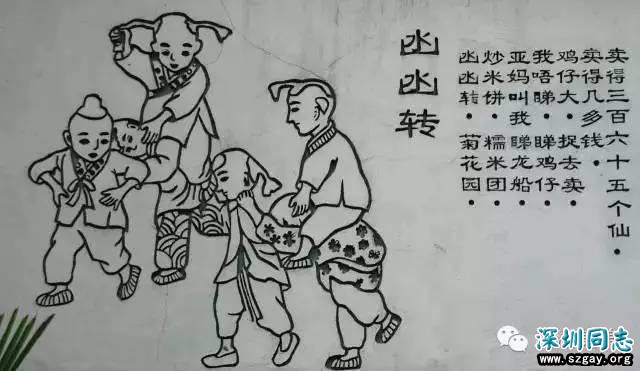 凼凼转
凼凼转·菊花园·
炒米饼·糯米团·
亚妈叫我睇龙船·
我唔睇·睇鸡仔·
鸡仔大·捉去卖·
卖得几多钱·
卖得三百六十五个仙·
深圳同志
www.szgay.org